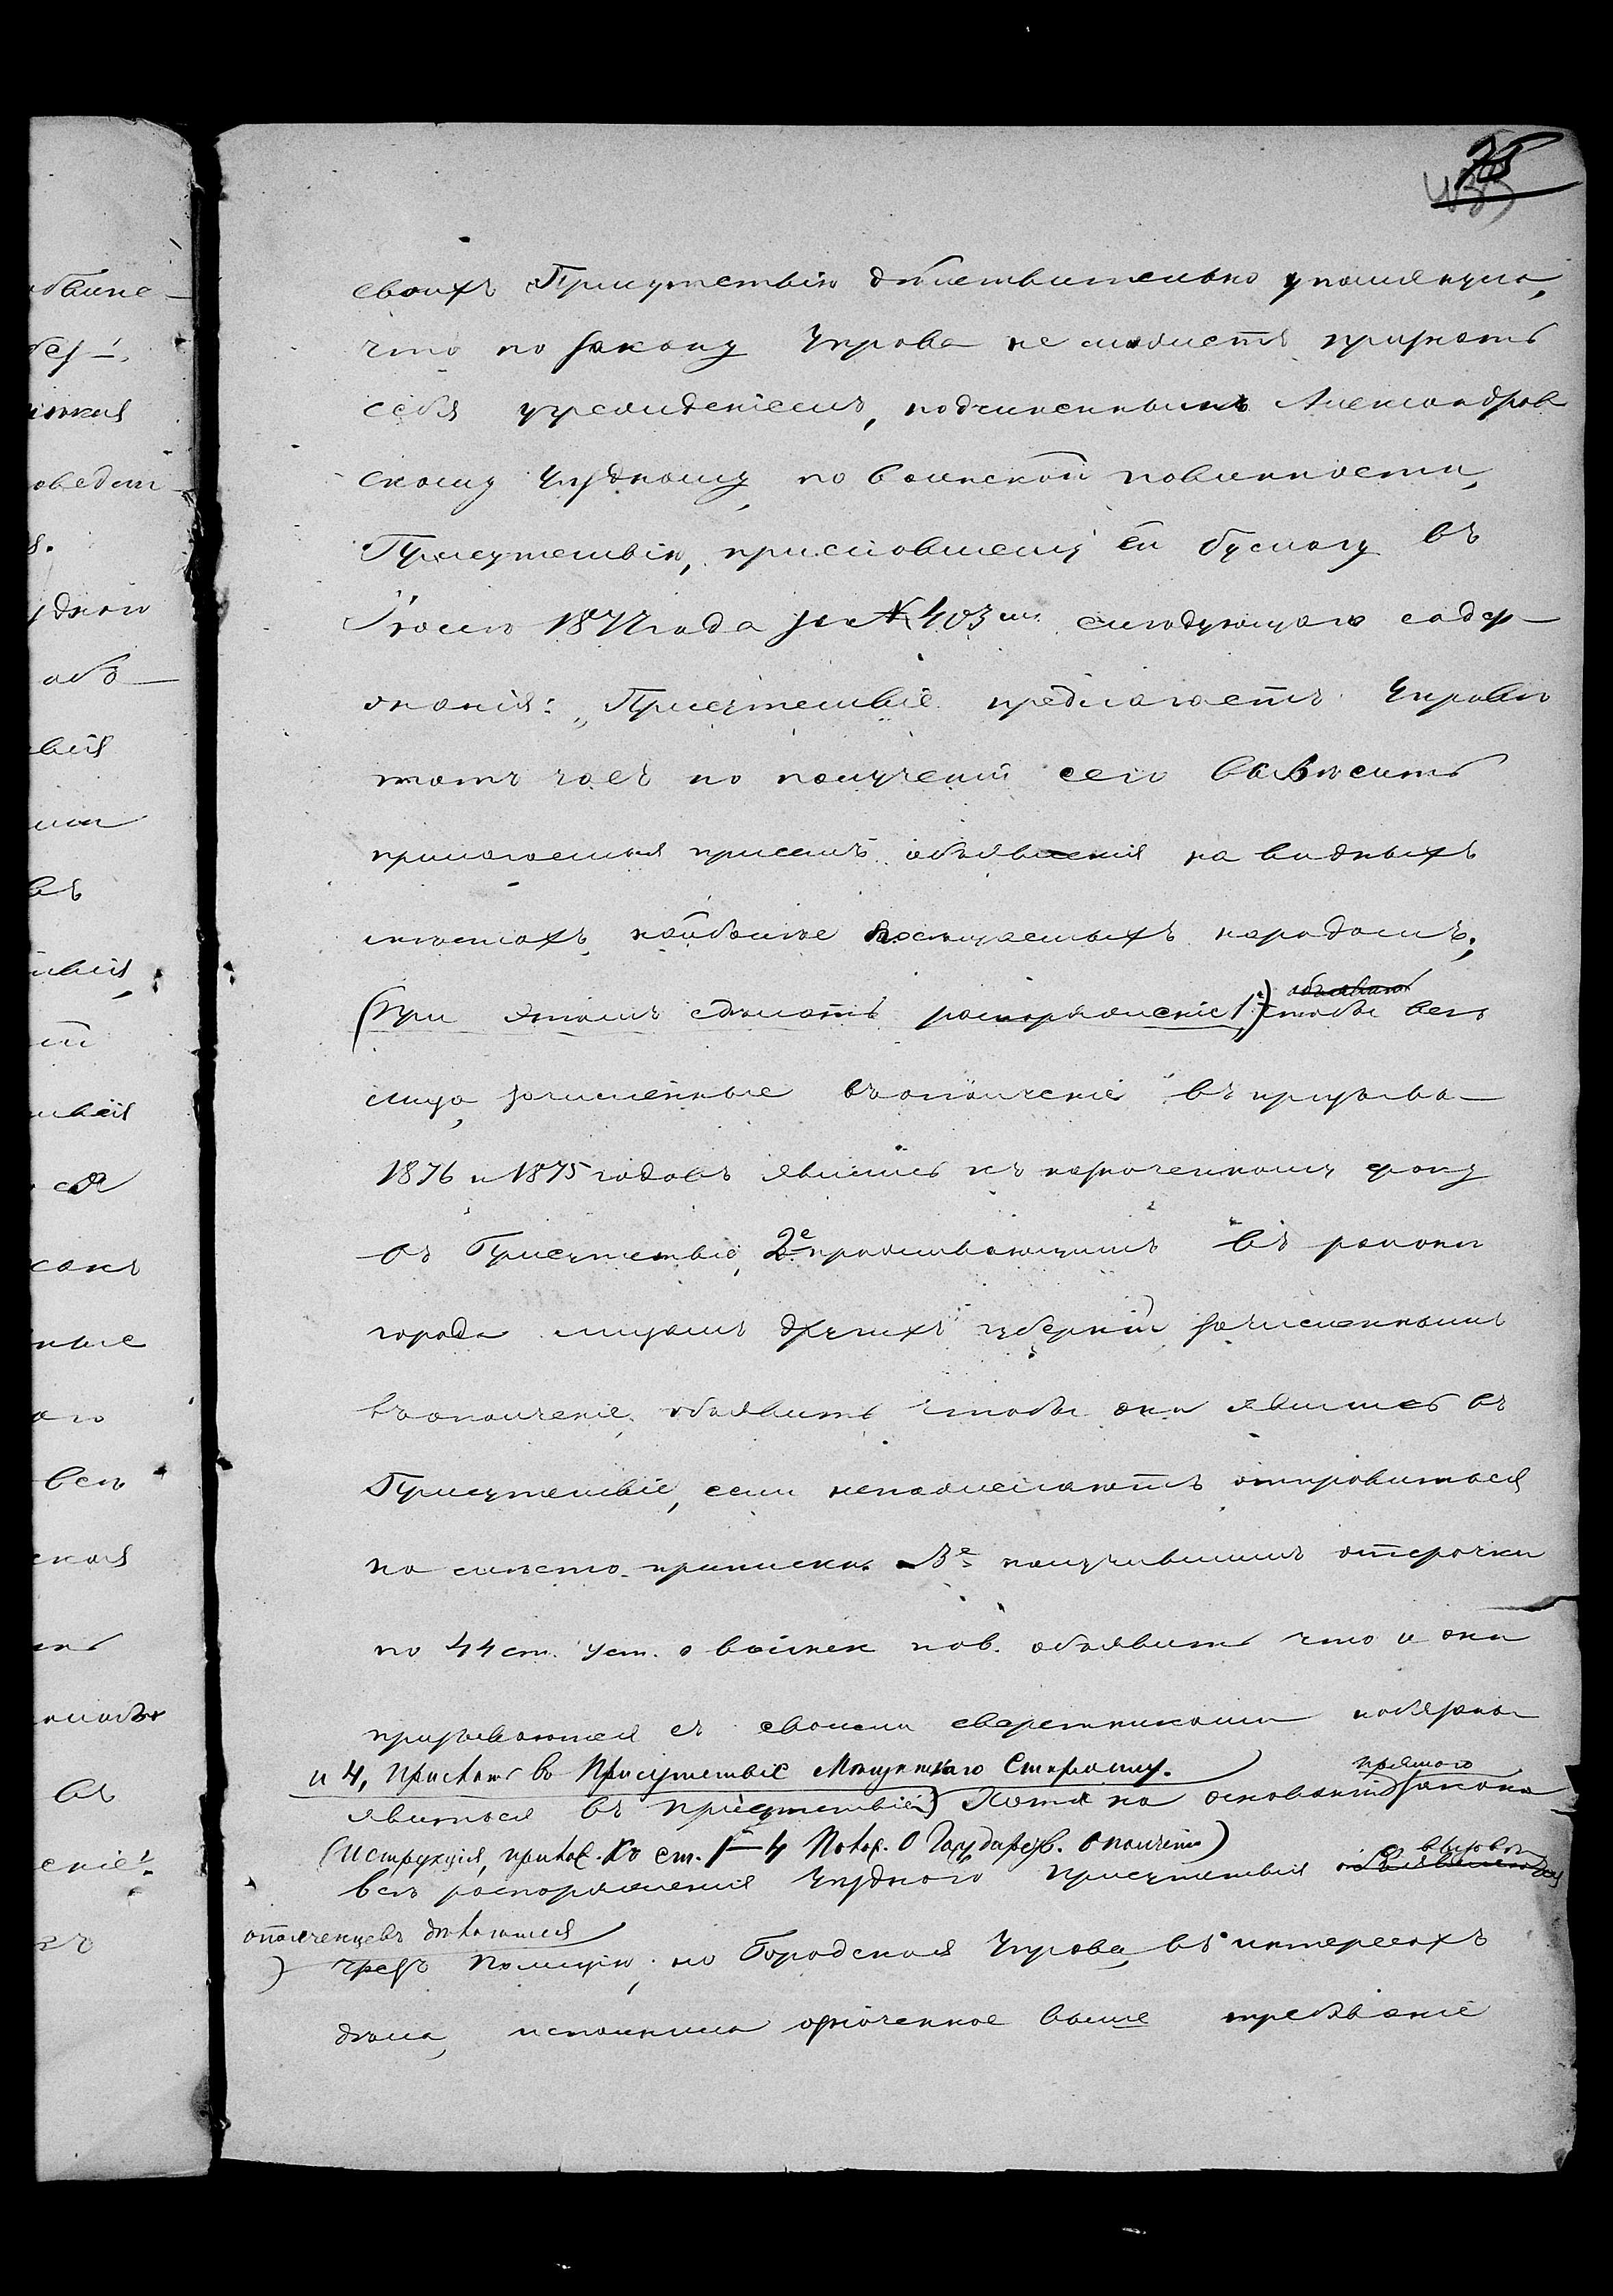 75
своихъ Присутствію дѣйствительно упомянула,
что по закону Управа не можетъ признать
себя учрежденіемъ, подчиненнымъ Александров
скому Уѣздному, по воинской повинности,
Присутствію, приславшему ей бумагу въ
Іюлѣ 1877 года за № 403 слѣдующаго содер-
жанія: „Присутствіе предлагаетъ Управѣ
тотъ часъ по полученіи сего вывѣсить
прилагаемыя присемъ объявленія на видныхъ
мѣстахъ наиболѣе посѣщаемыхъ народомъ;
(При этомъ сдѣлать распоряженіе 1) чтобы всѣ
лица, зачисленные въ ополченіе въ призыва
1876 и 1875 годовъ явились къ назначенному сроку
въ Присутствіе, 2е проживающимъ въ районѣ
города лицамъ другихъ губерній зачисленнымъ
въ ополченіе, объявить чтобы они явились въ
Присутствіе, если непожелаютъ отправиться
на мѣсто приписки. 3е получившимъ отсрочки
по 44 ст. Уст. о воинск пов. объявить что и они
призываются съ своими сверстниками и обязаны
и 4, Прислать въ Присутствіе Мѣщанскаго Старосту.
прямого
явиться въ присутствіе) Хотя на основаніи закона
(Иструкція, прилож. къ ст. 1-4 Полож. О Государств. ополченіи)
о вызовѣ
всѣ распоряженія Уѣзднаго Присутствія
ополченцевъ дѣлаются
чрезъ Полицію, но Городская Управа, въ интересахъ
дѣла, исполнила означенное выше требованіе
обвине-
оведен
уѣднаго
объ-
вія
въ
ся
ные
аго
всѣ
ская
въ